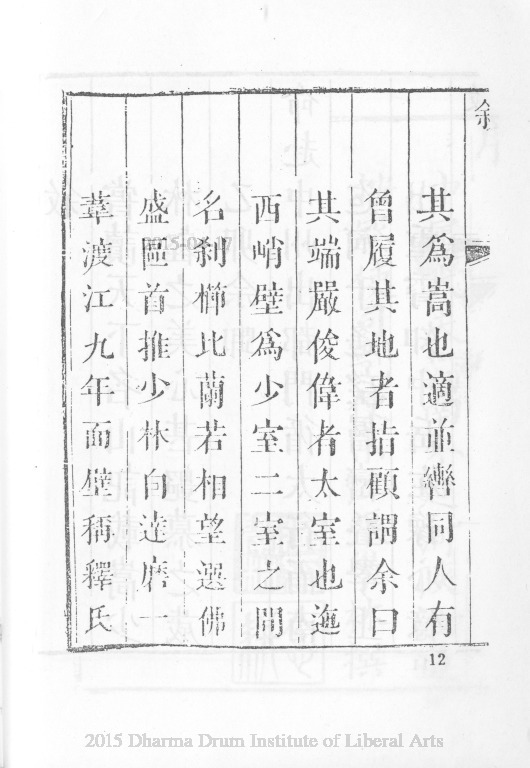 其爲嵩也適並轡同人有
曾履其地者指顧謂余曰
其端嚴俊偉者太室也迤
西峭壁爲少室二室之間
名刹櫛比蘭若相望選佛
盛區首推少林自達磨一
葦渡江九年面壁稱釋氏
12
2015 Dharma Drum Institute of Liberal Arts